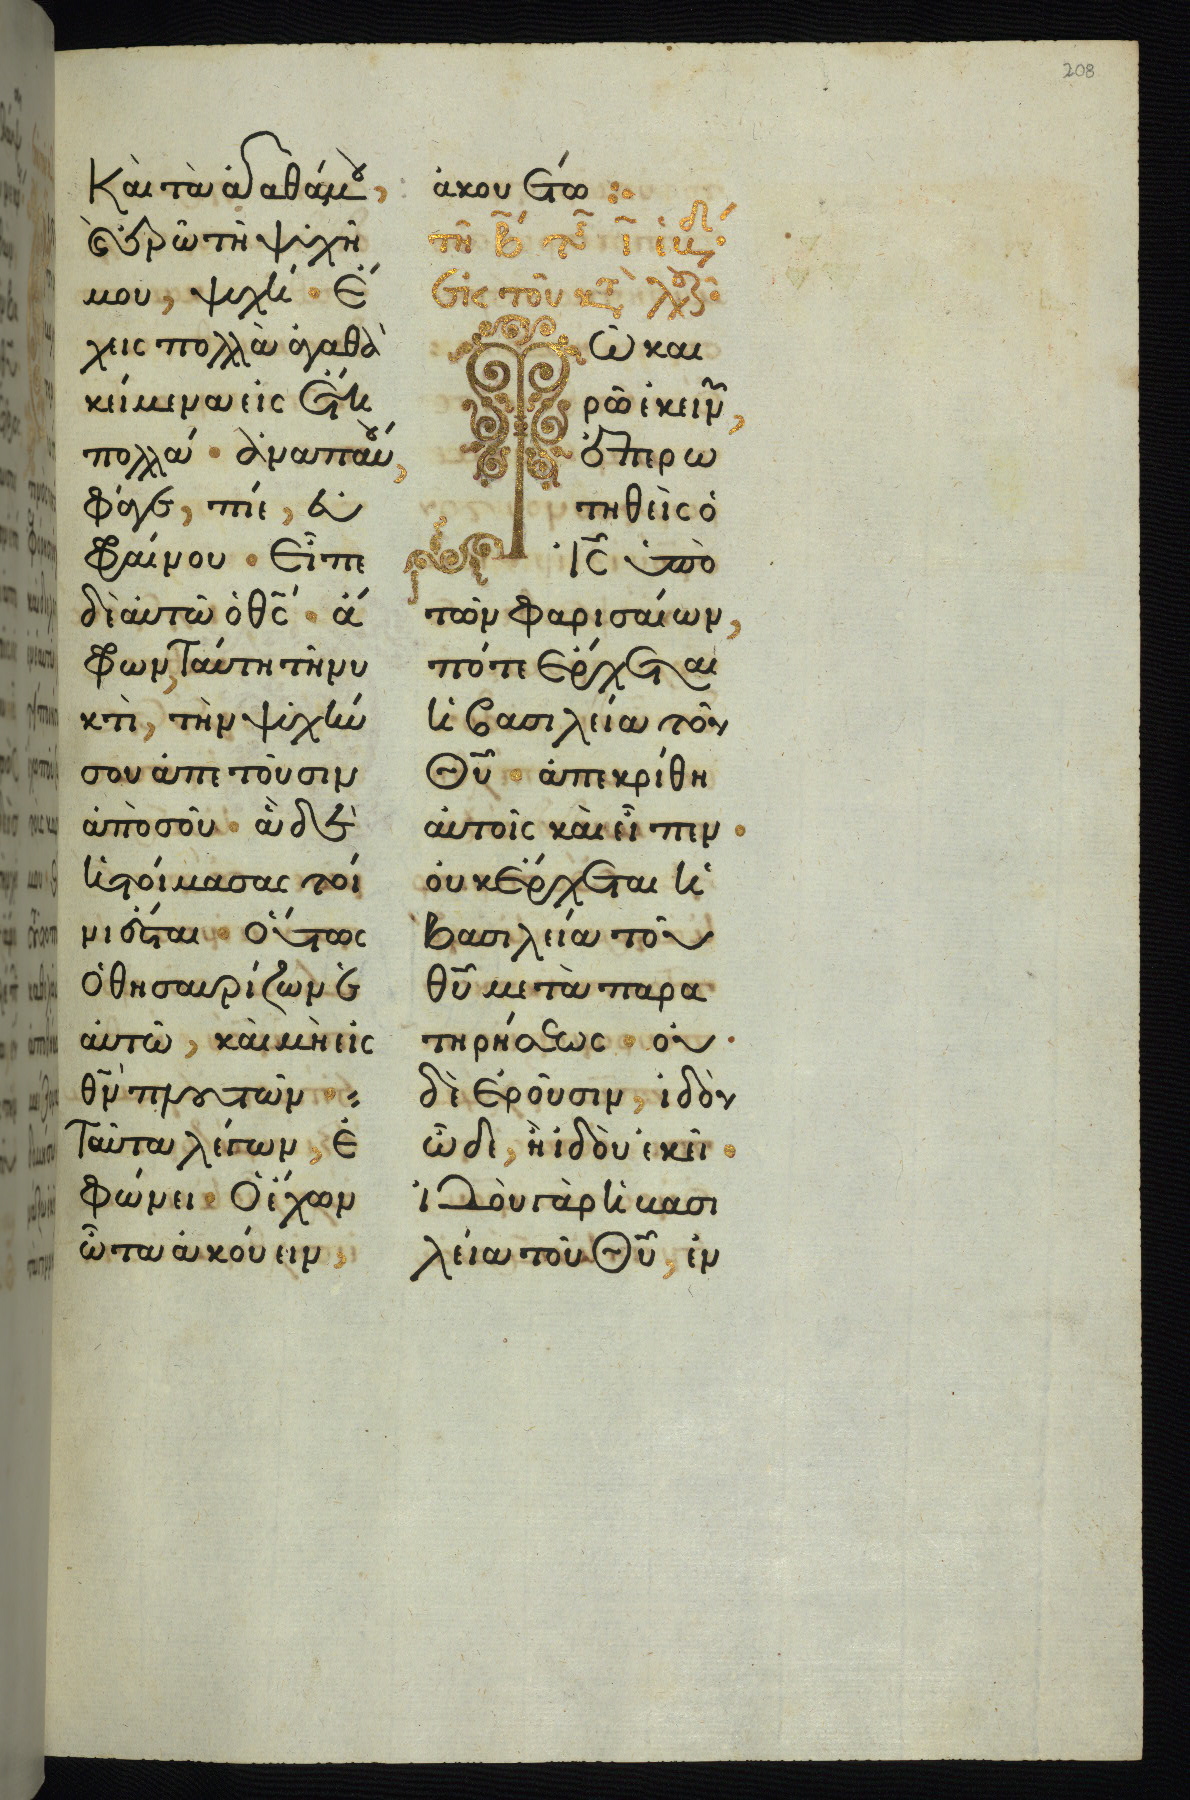 208
Καὶ τὰ ἀγαθά μου,
καὶ ἐρῶ τῇ ψυχῇ
μου, ψυχή · ἔ
χεις πολλὰ ἀγαθὰ
κείμενα εἰς ἔτη
πολλά · ἀναπαύου,
φάγε, πίε, εὐ
φραίνου · Εἶπε
δὲ αὐτῶ ὁ θς · ἄ
φρων, Ταύτη τῆ νυ
κτὶ, τὴν ψυχήν
σου ἀπαιτοῦσιν
ἀπὸ σοῦ · ἃ δὲ
ἡτοίμασας τίνι
ἔσται · Οὕτως
Ὁ θησαυρίζων ἑ
αυτῶ, καὶ μὴ εἰς
θν πλουτῶν ·
Ταῦτα λέγων, ἐ
φώνει · Ὁ ἔχων
ὦτα ἀκούειν,
ἀκουέτω :·
Τῶ και
ρῶ ἐκείνω,
ἐπερω
τηθεὶς ὁ
Ις ὑπὸ
τῶν Φαρισαίων,
πότε ἔρχεται
ἡ βασιλεία τοῦ
Θυ · ἀπεκρίθη
αὐτοῖς καὶ εἶπεν ·
οὐκ ἔρχεται ἡ
βασιλεία τοῦ
θυ μετὰ παρα
τηρήσεως · οὐ
δὲ ἐροῦσιν, ἰδοὺ
ὧδε, ἢ ἰδοὺ ἐκεῖ ·
ἰδοὺ γὰρ ἡ βασι
λεία τοῦ Θυ, ἐν